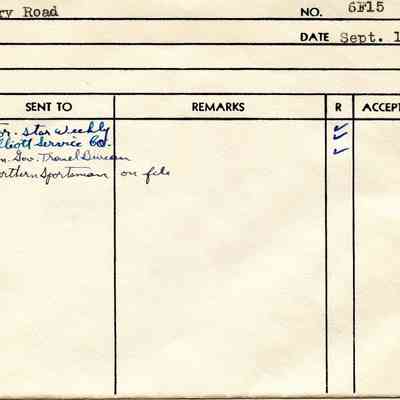 ry Road NO. 6F15
DATE Sept. 1
SENT TO REMARKS R ACCEPT
or. Star Weekly ✓
lliott Service Co. ✓
n. Gov. Travel Bureau ✓
orthern Sportsman on file